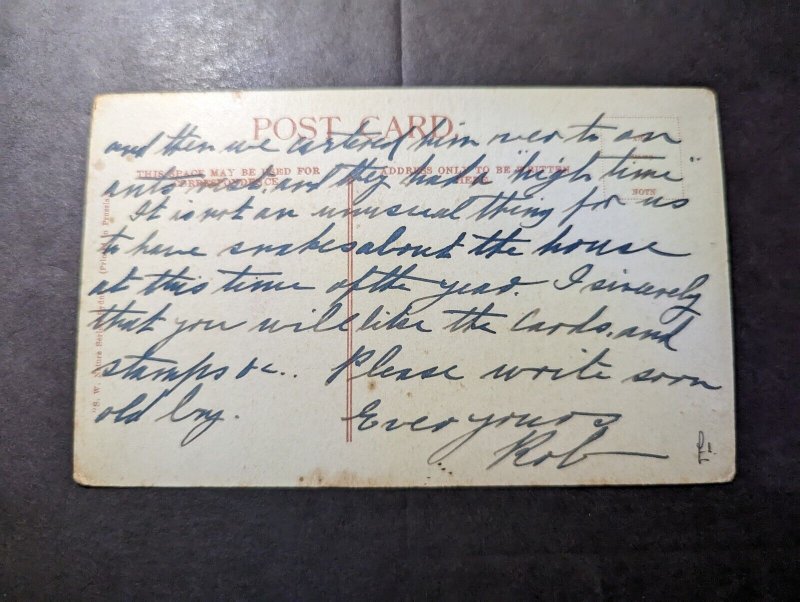 POST CARD
and then we carted him over to an
THIS SPACE MAY BE USED FOR
CORRESPONDENCE
ADDRESS ONLY TO BE WRITTEN
HERE
ants nest, and they had a "high time"
It is not an unusual thing for us
to have snakes about the house
at this time of the year. I sincerely
that you will like the Cards, and
stamps &c.. Please write soon
old boy. Ever yours
Rob
£1.